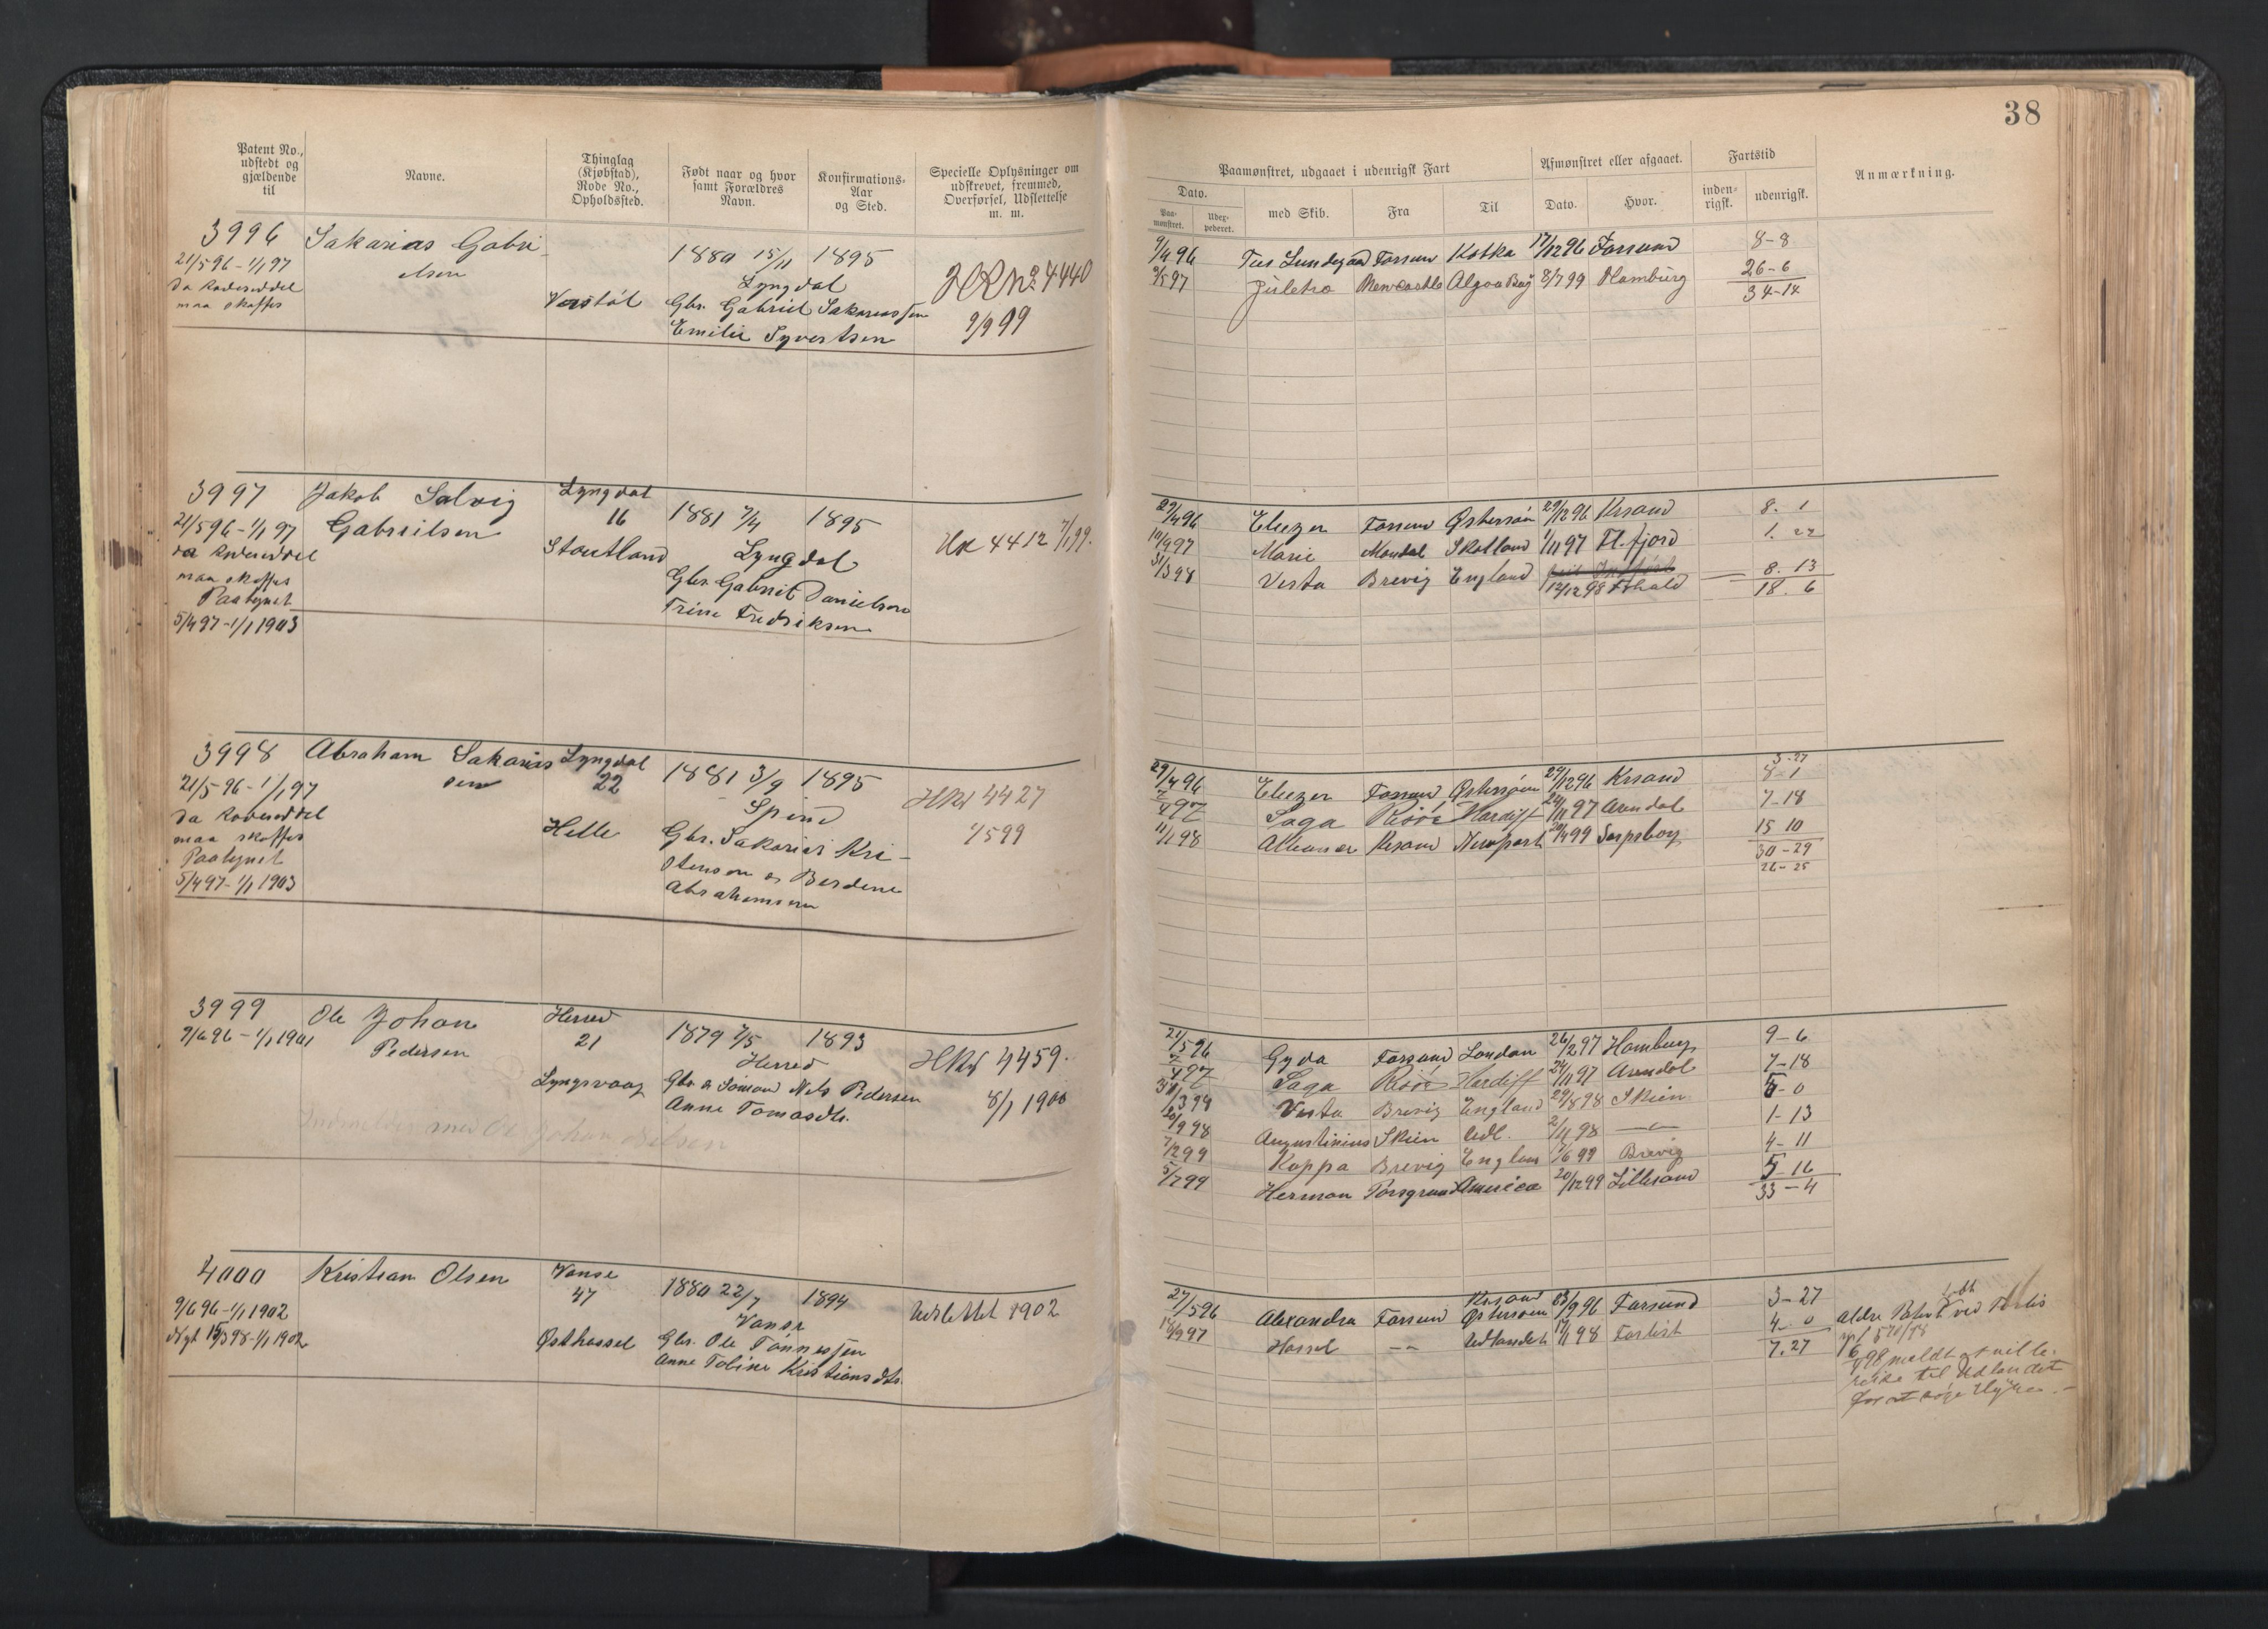 38
Patent No., udstedt og gjældende til
Navne.
Thinglag (Kjøbstad), Rode No., Opholdssted.
Født naar og hvor samt Forældres Navn.
Konfirmations-Aar og Sted.
Specielle Oplysninger om udskrevet, fremmed, Overførsel, Udslettelse m. m.
Paamønstret, udgaaet i udenrigsk Fart
Afmønstret eller afgaaet.
Fartstid
Anmærkning.
Dato.
Paa-mønstret.
Uder-pederet.
med Skib.
Fra
Til
Dato.
Hvor.
inden-rigsk.
udenrigsk.
3996 Sakarias Gabri-
elsen
21/5 96 - 1/1 97
da Rodeseddel
maa skaffes
Verstøl
1880 15/11 1895
Lyngdal
Gbr. Gabriel Sakariassen
Emilie Syvertsen
HR No 4440
9/9 99
9/4 96 Tus Lundegaard Farsund Kotka 17/12 96 Farsund 8-8
Juletræ Newcastle Algoa Bay 8/7 99 Hamburg 26-6
34-14
3997 Jakob Salvig
Gabrielsen
21/5 96 - 1/1 97
da Rodeseddel
maa skaffes
Paategnet
5/4 97 - 1/1 1903
Lyngdal
16
Stautland
1881 7/4 1895
Lyngdal
Gbr. Gabriel Danielsen
Trine Fredriksen
HR 4412 7/1 99.
29/4 96 Eliezer Farsund Østersøen 29/12 96 Krsand 8. 1
10/9 97 Marie Mandal Skotland 1/11 97 Fl.fjord 1. 22
31/3 98 Vesta Brevig England
13/12 98 Fhald 8. 13
18. 6
3998 Abraham Sakarias
sen
21/5 96 - 1/1 97
da Rodeseddel
maa skaffes
Paategnet
5/4 97 - 1/1 1903
Lyngdal
22
Helle
1881 3/9 1895
Spind
Gbr. Sakarias Kri-
stensen og Berdine
Abrahamsen
HRd 4427
3-27
29/4 96 Eliezer Farsund Østersøen 29/12 96 Krsand 8-1
7/4 97 Saga Risør Hardiff 24/11 97 Arendal 7-18
11/1 98 Krsand Newport 20/4 99 Sarpsborg 15 10
30-29
26-25
3999 Ole Johan
Pedersen
9/6 96 - 1/1 1901
Herred
21
Lyngsvaag
1879 7/5 1893
Herred
Gbr. og Sømand Nels Pedersen
Anne Tomasdtr.
HRd 4459.
8/1 1900
med Ole Johan Nelsen
21/5 96 Gyda Farsund London 26/2 97 Hamburg 9-6
7/4 97 Saga Risør Hardiff 24/11 97 Arendal 7-18
Vesta Brevig England 29/8 98 Skien 5-0
20/9 98 Augustinius Skien Udl. 2/11 98 —"— 1-13
7/2 99 Koppa Brevig England Brevig 4-11
5/7 99 Herman Porsgrund America 20/12 99 Lillesand 5-16
33-4
4000 Kristian Olsen
9/6 96 - 1/1 1902
Nyt 15/3 98 - 1/1 1902
Vanse
47
Østhassel
1880 22/7 1894
Vanse
Gbr. Ole Tønnessen
Anne Toline Kristiansdtr.
Udslettet 1902
27/5 96 Alexandra Farsund Krsand Østersøen 23/9 96 Farsund 3-27
18/9 97 Hassel —"— Udlandet 17/1 98 Forlist 4-0
7. 27
ældre Patent ved Forlis
98 meldt at ville
reise til Udlandet
for at søge Hyre.